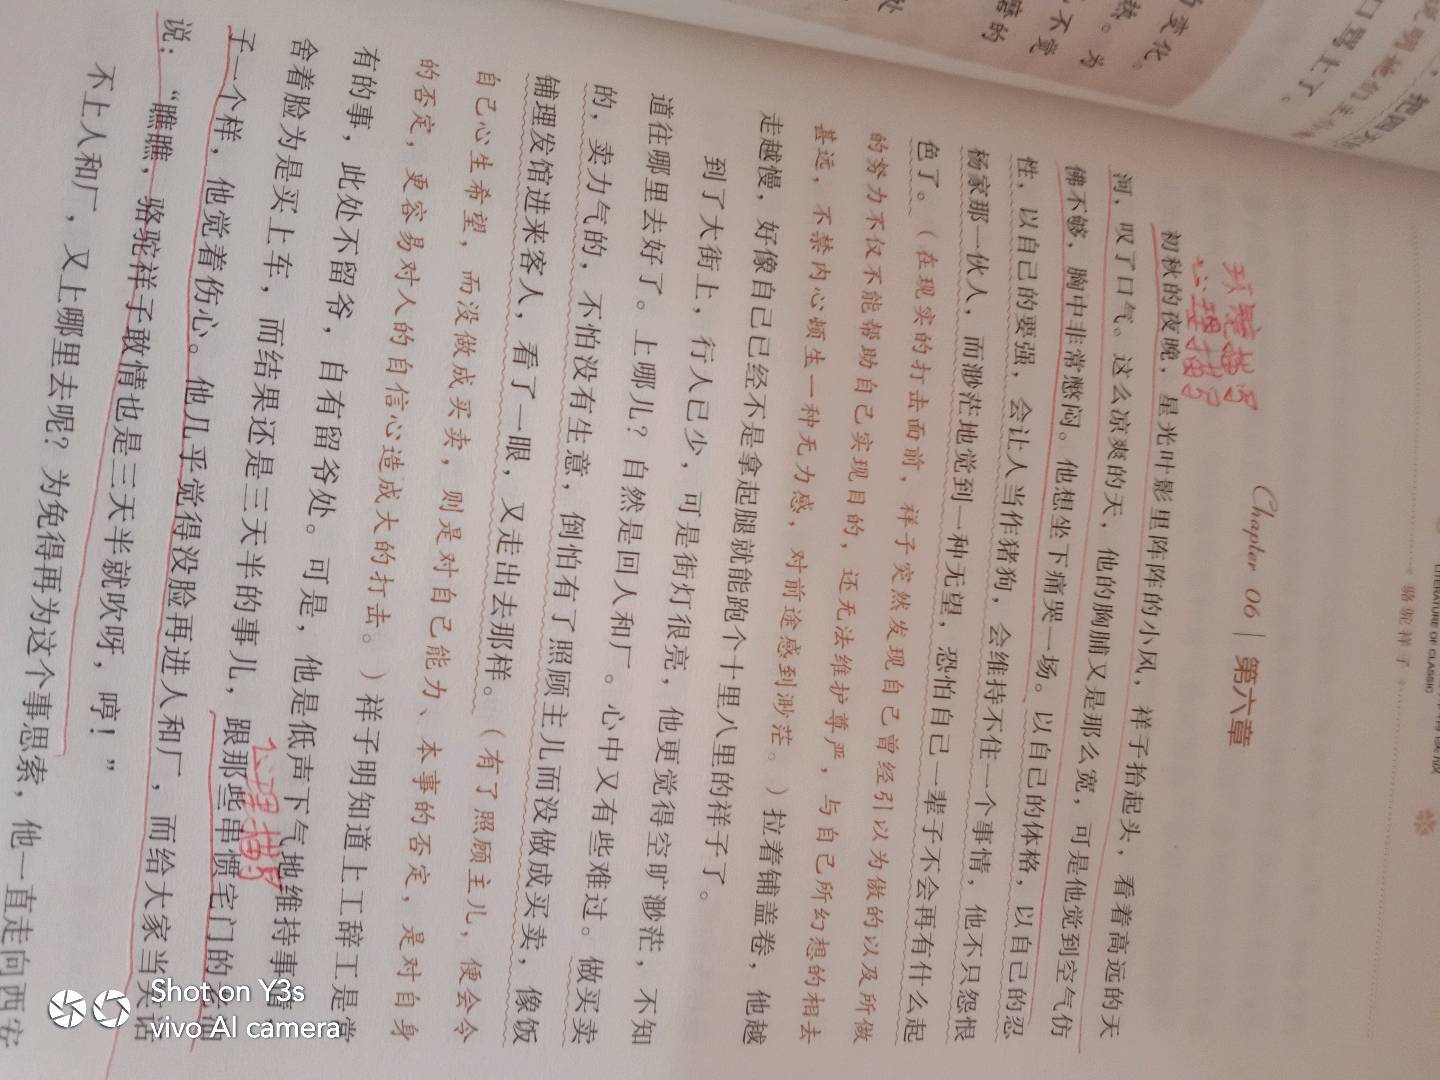 LITERATURE OF CLASSIC
骆驼祥子
Chapter 06 | 第六章
环境描写
心理描写
初秋的夜晚，星光叶影里阵阵的小风，祥子抬起头，看着高远的天
河，叹了口气。这么凉爽的天，他的胸脯又是那么宽，可是他觉到空气仿
佛不够，胸中非常憋闷。他想坐下痛哭一场。以自己的体格，以自己的忍
性，以自己的要强，会让人当作猪狗，会维持不住一个事情，他不只怨恨
杨家那一伙人，而渺茫地觉到一种无望，恐怕自己一辈子不会再有什么起
色了。（在现实的打击面前，祥子突然发现自己曾经引以为傲的以及所做
的努力不仅不能帮助自己实现目的，还无法维护尊严，与自己所幻想的相去
甚远，不禁内心顿生一种无力感，对前途感到渺茫。）拉着铺盖卷，他越
走越慢，好像自己已经不是拿起腿就能跑个十里八里的祥子了。
到了大街上，行人已少，可是街灯很亮，他更觉得空旷渺茫，不知
道往哪里去好了。上哪儿？自然是回人和厂。心中又有些难过。做买卖
的，卖力气的，不怕没有生意，倒怕有了照顾主儿而没做成买卖，像饭
铺理发馆进来客人，看了一眼，又走出去那样。（有了照顾主儿，便会令
自己心生希望，而没做成买卖，则是对自己能力、本事的否定，是对自身
的否定，更容易对人的自信心造成大的打击。）祥子明知道上工辞工是常
有的事，此处不留爷，自有留爷处。可是，他是低声下气地维持事情，
舍着脸为是买上车，而结果还是三天半的事儿，跟那些串惯宅门的
心理描写
子一个样，他觉着伤心。他几乎觉得没脸再进人和厂，而给大家当笑话
说：“瞧瞧，骆驼祥子敢情也是三天半就吹呀，哼！”
不上人和厂，又上哪里去呢？为免得再为这个事思索，他一直走向西安
Shot on Y3s
vivo AI camera